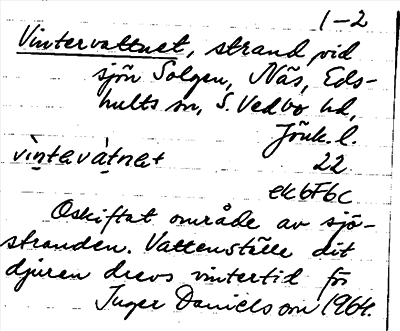 1-2
Vintervattnet, strand vid
sjön Solgen, Näs, Eds-
hults sn, S. Vedbo hd,
Jönk. l.
vìntavàtnat 22
ek6F6c
Oskiftat område av sjö-
stranden. Vattenställe dit
djuren drevs vintertid för
Inger Danielsson 1964.